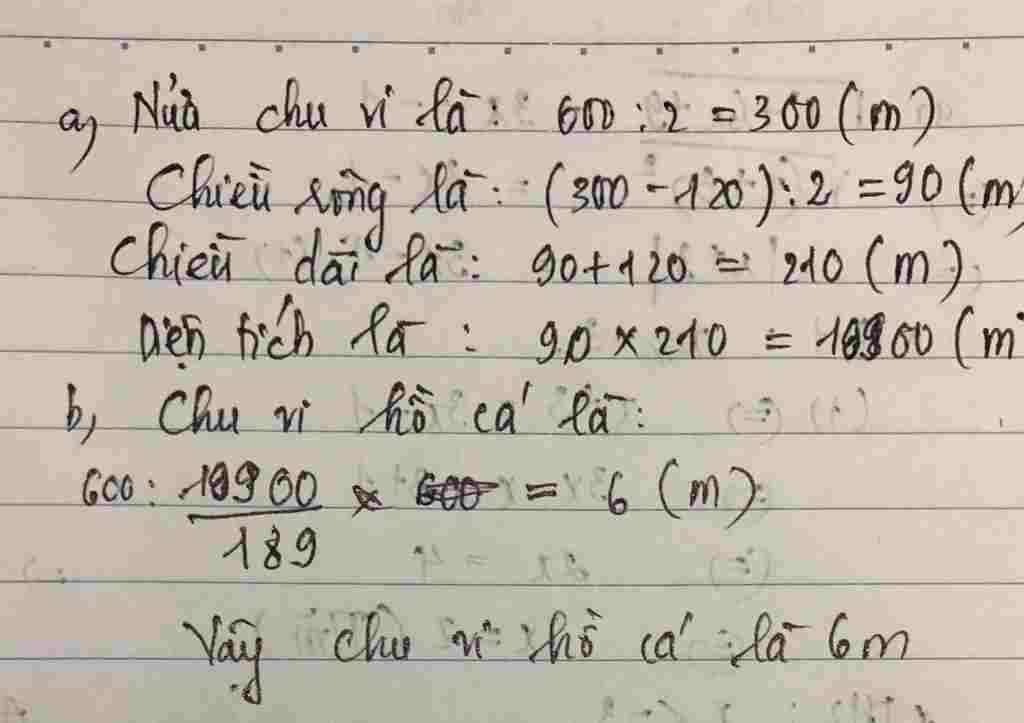 a, Nửa chu vi là: 600 : 2 = 300 (m)
Chiều rộng là: (300 - 120) : 2 = 90 (m)
Chiều dài là: 90 + 120 = 210 (m)
Diện tích là : 90 x 210 = 18900 (m
b, Chu vi hồ cá là:
600 : 18900/189 = 6 (m)
Vậy chu vi hồ cá là 6m